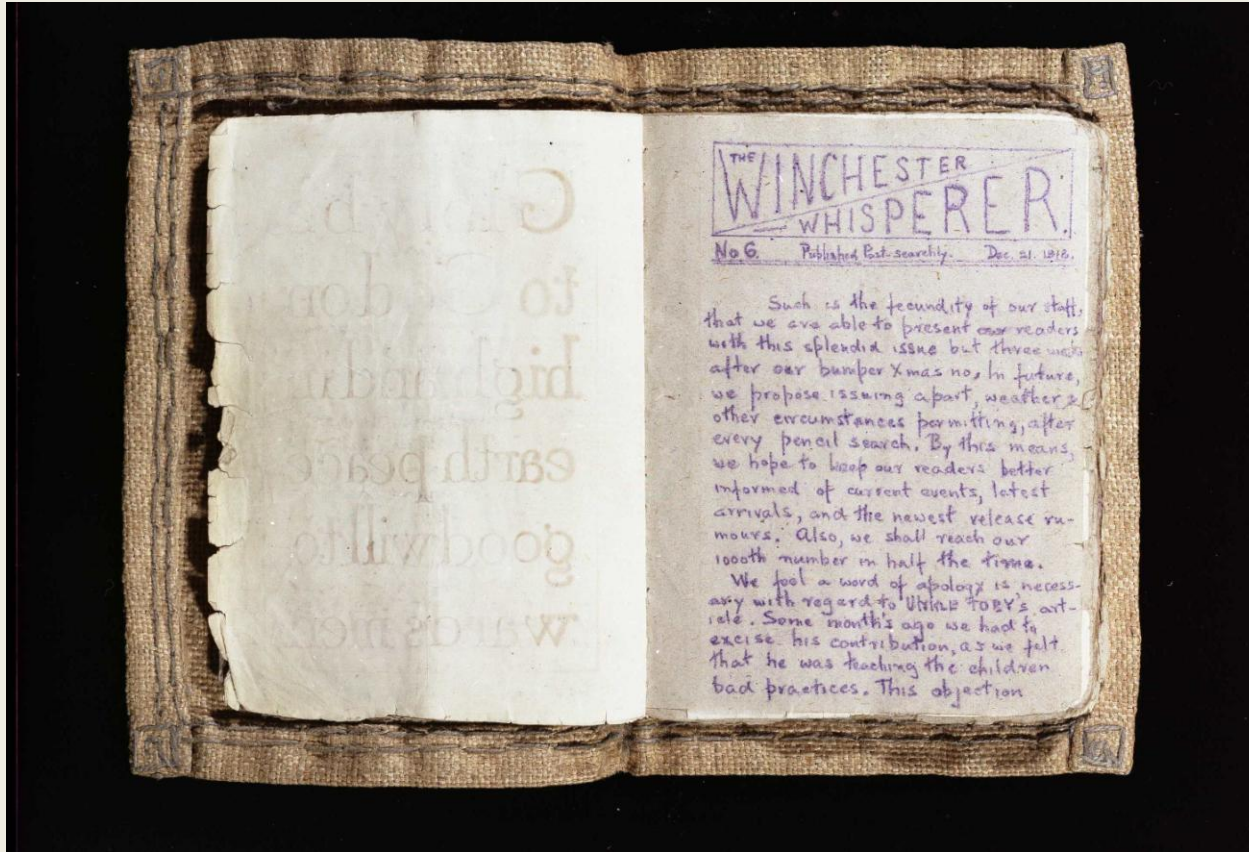 Glory be
to God on
high and in
earth peace
goodwill to
wards men
THE
WINCHESTER
WHISPERER.
No 6. Published Post-searchly. Dec. 21. 1918.
Such is the fecundity of our staff,
that we are able to present our readers
with this splendid issue but three weeks
after our bumper Xmas no, In future,
we propose issuing apart, weather &
other circumstances permitting, after
every pencil search. By this means,
we hope to keep our readers better
informed of current events, latest
arrivals, and the newest release ru-
mours. Also, we shall reach our
1000th number in half the time.
We feel a word of apology is necess-
ary with regard to UNKLE TOBY's art-
icle. Some months ago we had to
excise his contribution, as we felt
that he was teaching the children
bad practices. This objection